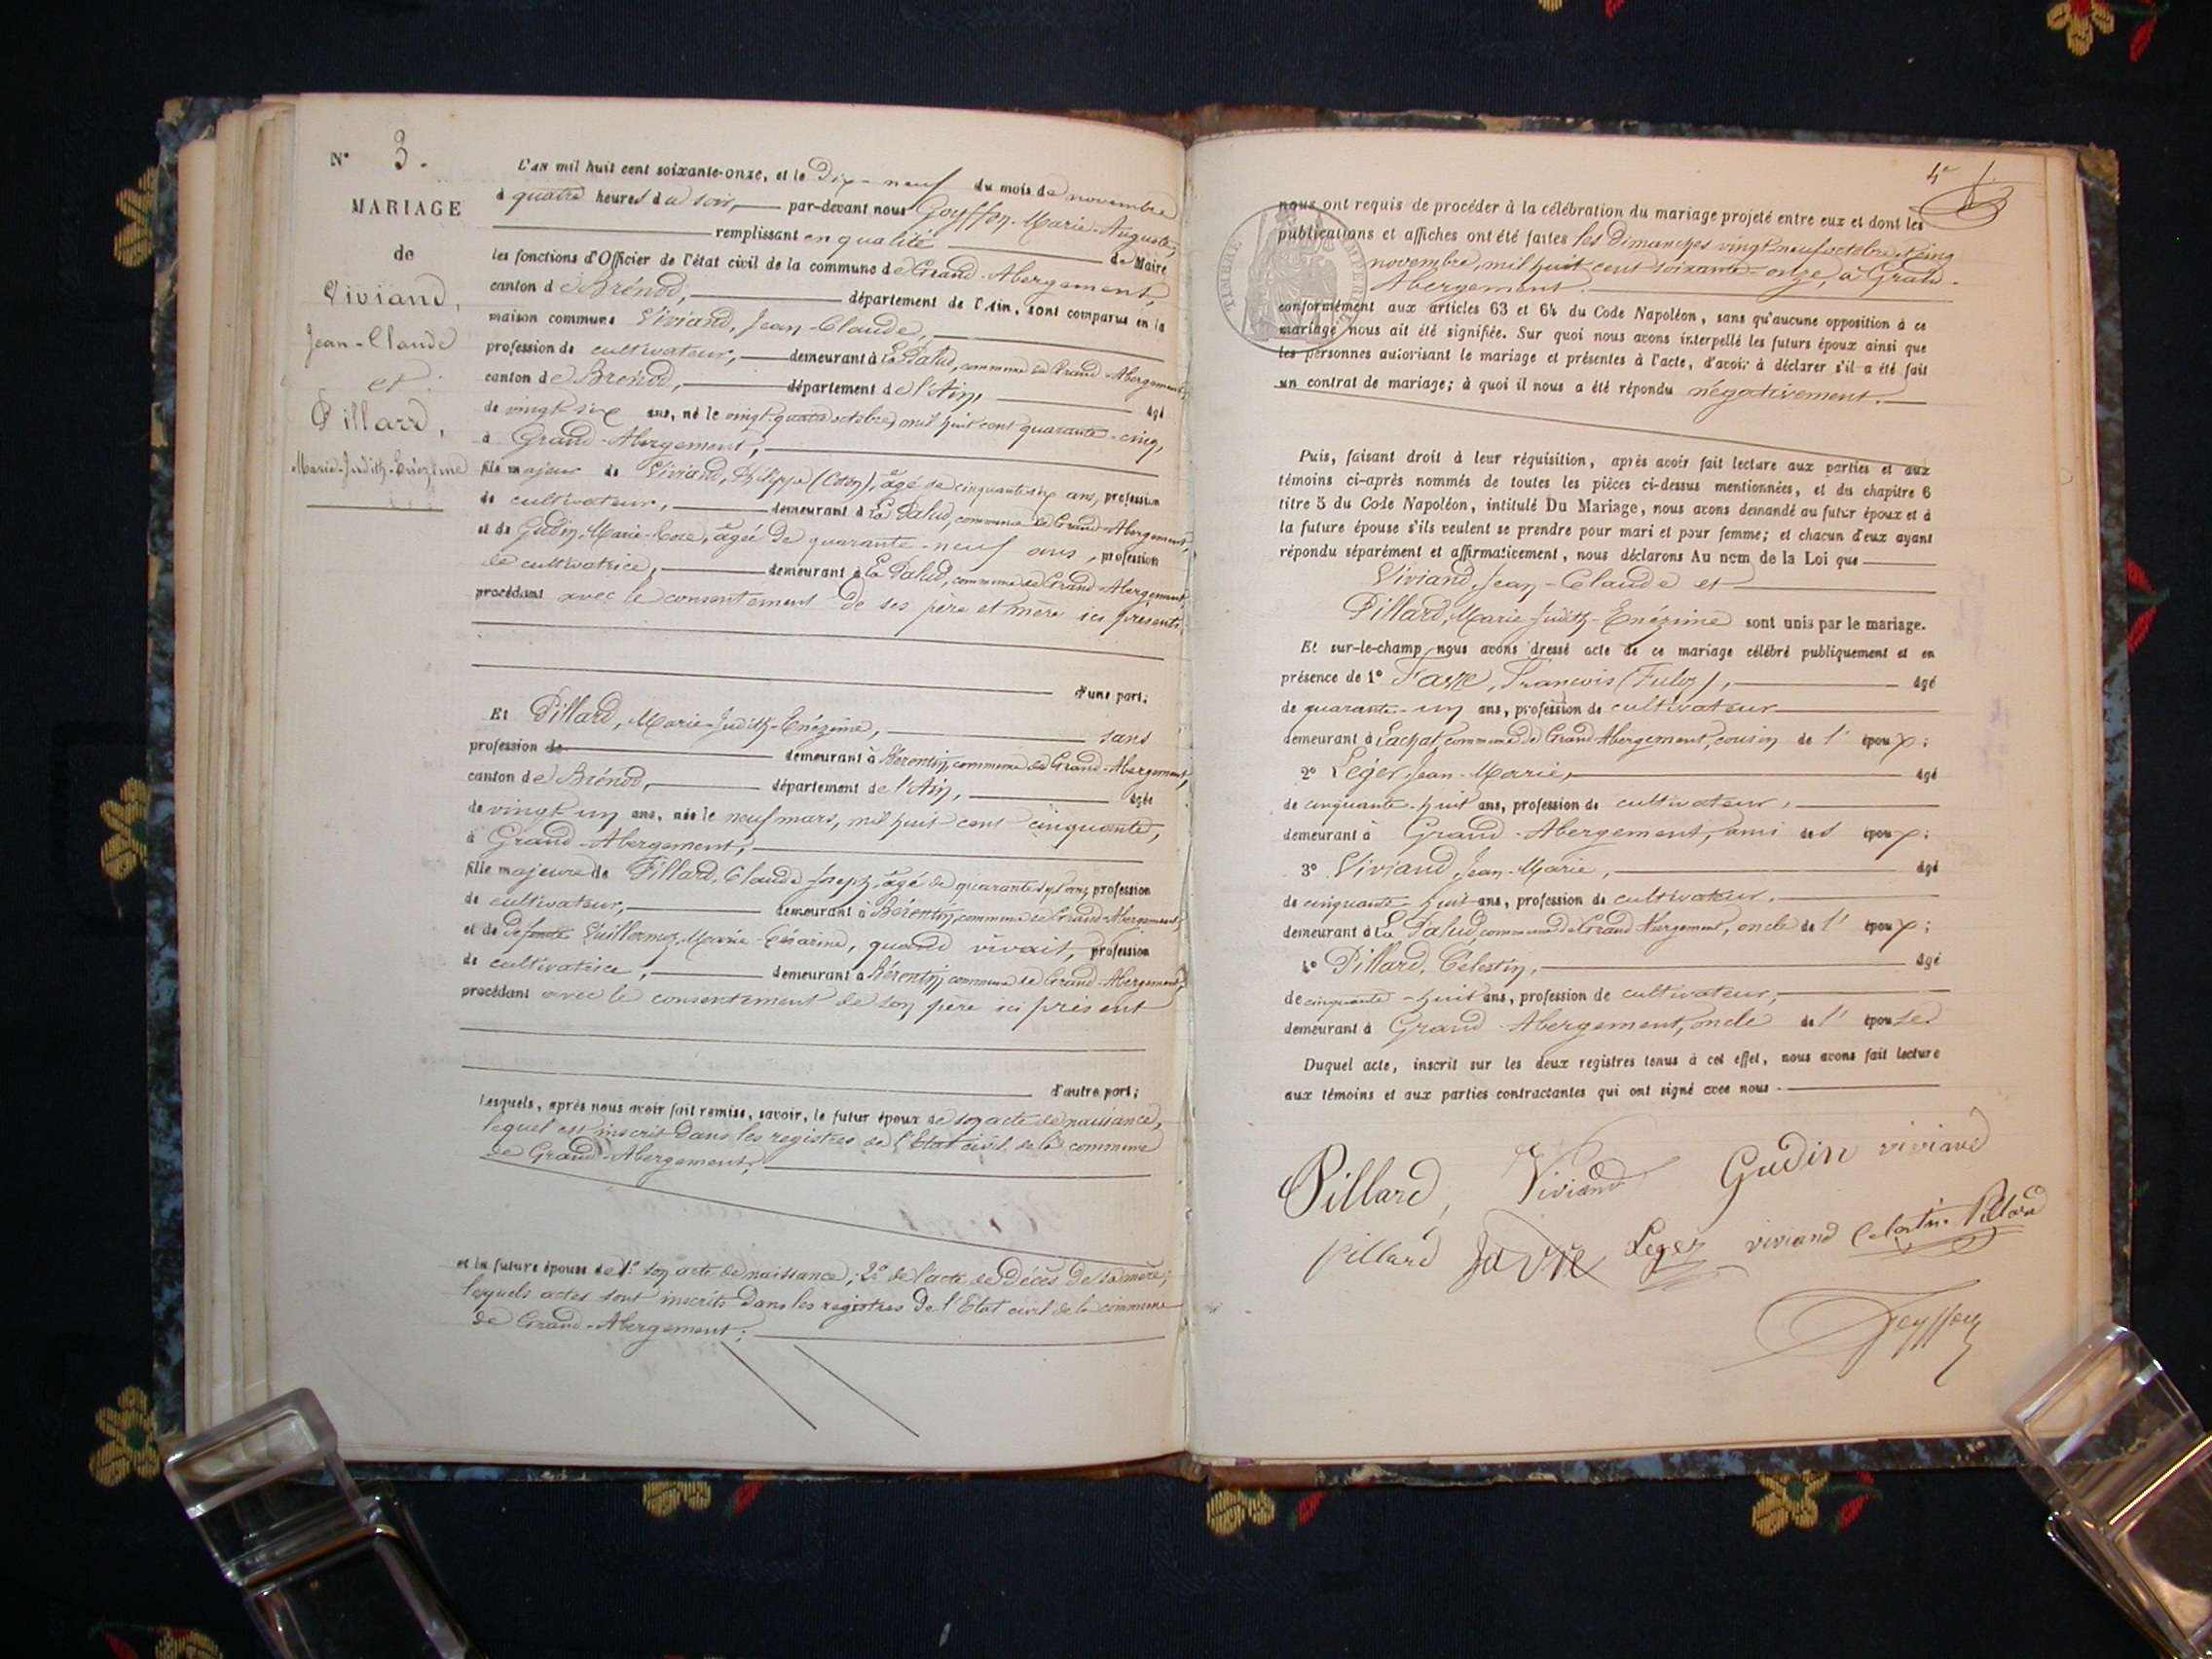 N° 3.
MARIAGE
de
Viviand,
Jean-Claude
et
Pillard,
Marie-Judith-Enézime
L'an mil huit cent soixante-onze, et le Dix-neuf du mois de novembre
à quatre heures du soir, par-devant nous Goyffon Marie-Auguste,
remplissant en qualité de Maire
les fonctions d'Officier de l'état civil de la commune de Grand-Abergement,
canton de Brénod, département de l'Ain, sont comparus en la
maison commune Viviand, Jean-Claude,
profession de cultivateur, demeurant à La Palud, commune de Grand-Abergement,
canton de Brénod, département de l'Ain, âgé
de vingt six ans, né le vingt-quatre octobre, mil huit cent quarante-cinq,
à Grand-Abergement,
fils majeur de Viviand, Philippe (Coton), âgé de cinquante six ans, profession
de cultivateur, demeurant à La Palud, commune de Grand-Abergement,
et de Gudin, Marie-Rose, âgée de quarante-neuf ans, profession
de cultivatrice, demeurant à La Palud, commune de Grand-Abergement,
procédant avec le consentement de ses père et mère ici présents,
d'une part;
Et Pillard, Marie-Judith-Enézime, sans
profession de demeurant à Bérentin, commune de Grand-Abergement,
canton de Brénod, département de l'Ain, âgée
de vingt un ans, née le neuf mars, mil huit cent cinquante,
à Grand-Abergement,
fille majeure de Pillard, Claude Joseph, âgé de quarante sept ans, profession
de cultivateur, demeurant à Bérentin, commune de Grand-Abergement,
et de défunte Guillermoz, Marie-Césarine, quand vivait, profession
de cultivatrice, demeurant à Bérentin, commune de Grand-Abergement,
procédant avec le consentement de son père ici présent
d'autre part;
Lesquels, après nous avoir fait remise, savoir, le futur époux de son acte de naissance,
lequel est inscrit dans les registres de l'Etat civil de la commune
de Grand-Abergement;
et la future épouse de 1° son acte de naissance; 2° de l'acte de décès de sa mère;
lesquels actes sont inscrits dans les registres de l'Etat civil de la commune
de Grand-Abergement;
TIMBRE IMPERIAL
nous ont requis de procéder à la célébration du mariage projeté entre eux et dont les
publications et affiches ont été faites les dimanches vingt neuf octobre et cinq
novembre, mil huit cent soixante-onze, à Grand-
Abergement.
conformément aux articles 63 et 64 du Code Napoléon, sans qu'aucune opposition à ce
mariage nous ait été signifiée. Sur quoi nous avons interpellé les futurs époux ainsi que
les personnes autorisant le mariage et présentes à l'acte, d'avoir à déclarer s'il a été fait
un contrat de mariage; à quoi il nous a été répondu négativement.
Puis, faisant droit à leur réquisition, après avoir fait lecture aux parties et aux
témoins ci-après nommés de toutes les pièces ci-dessus mentionnées, et du chapitre 6
titre 5 du Code Napoléon, intitulé Du Mariage, nous avons demandé au futur époux et à
la future épouse s'ils veulent se prendre pour mari et pour femme; et chacun d'eux ayant
répondu séparément et affirmativement, nous déclarons Au nom de la Loi que
Viviand, Jean-Claude et
Pillard, Marie-Judith-Enézime sont unis par le mariage.
Et sur-le-champ nous avons dressé acte de ce mariage célébré publiquement et en
présence de 1° Favre, François (Fuloz), âgé
de quarante-un ans, profession de cultivateur
demeurant à Lachat, commune de Grand Abergement, cousin de l'époux;
2° Leger, Jean-Marie, âgé
de cinquante-huit ans, profession de cultivateur,
demeurant à Grand-Abergement, ami des époux;
3° Viviand, Jean-Marie, âgé
de cinquante huit ans, profession de cultivateur,
demeurant à La Palud, commune de Grand Abergement, oncle de l'époux;
4° Pillard, Célestin, âgé
de cinquante-huit ans, profession de cultivateur,
demeurant à Grand-Abergement, oncle de l'épouse
Duquel acte, inscrit sur les deux registres tenus à cet effet, nous avons fait lecture
aux témoins et aux parties contractantes qui ont signé avec nous.
Pillard, Viviand Gudin viviand
Pillard Favre Leger viviand Celestin Pillard
Goyffon